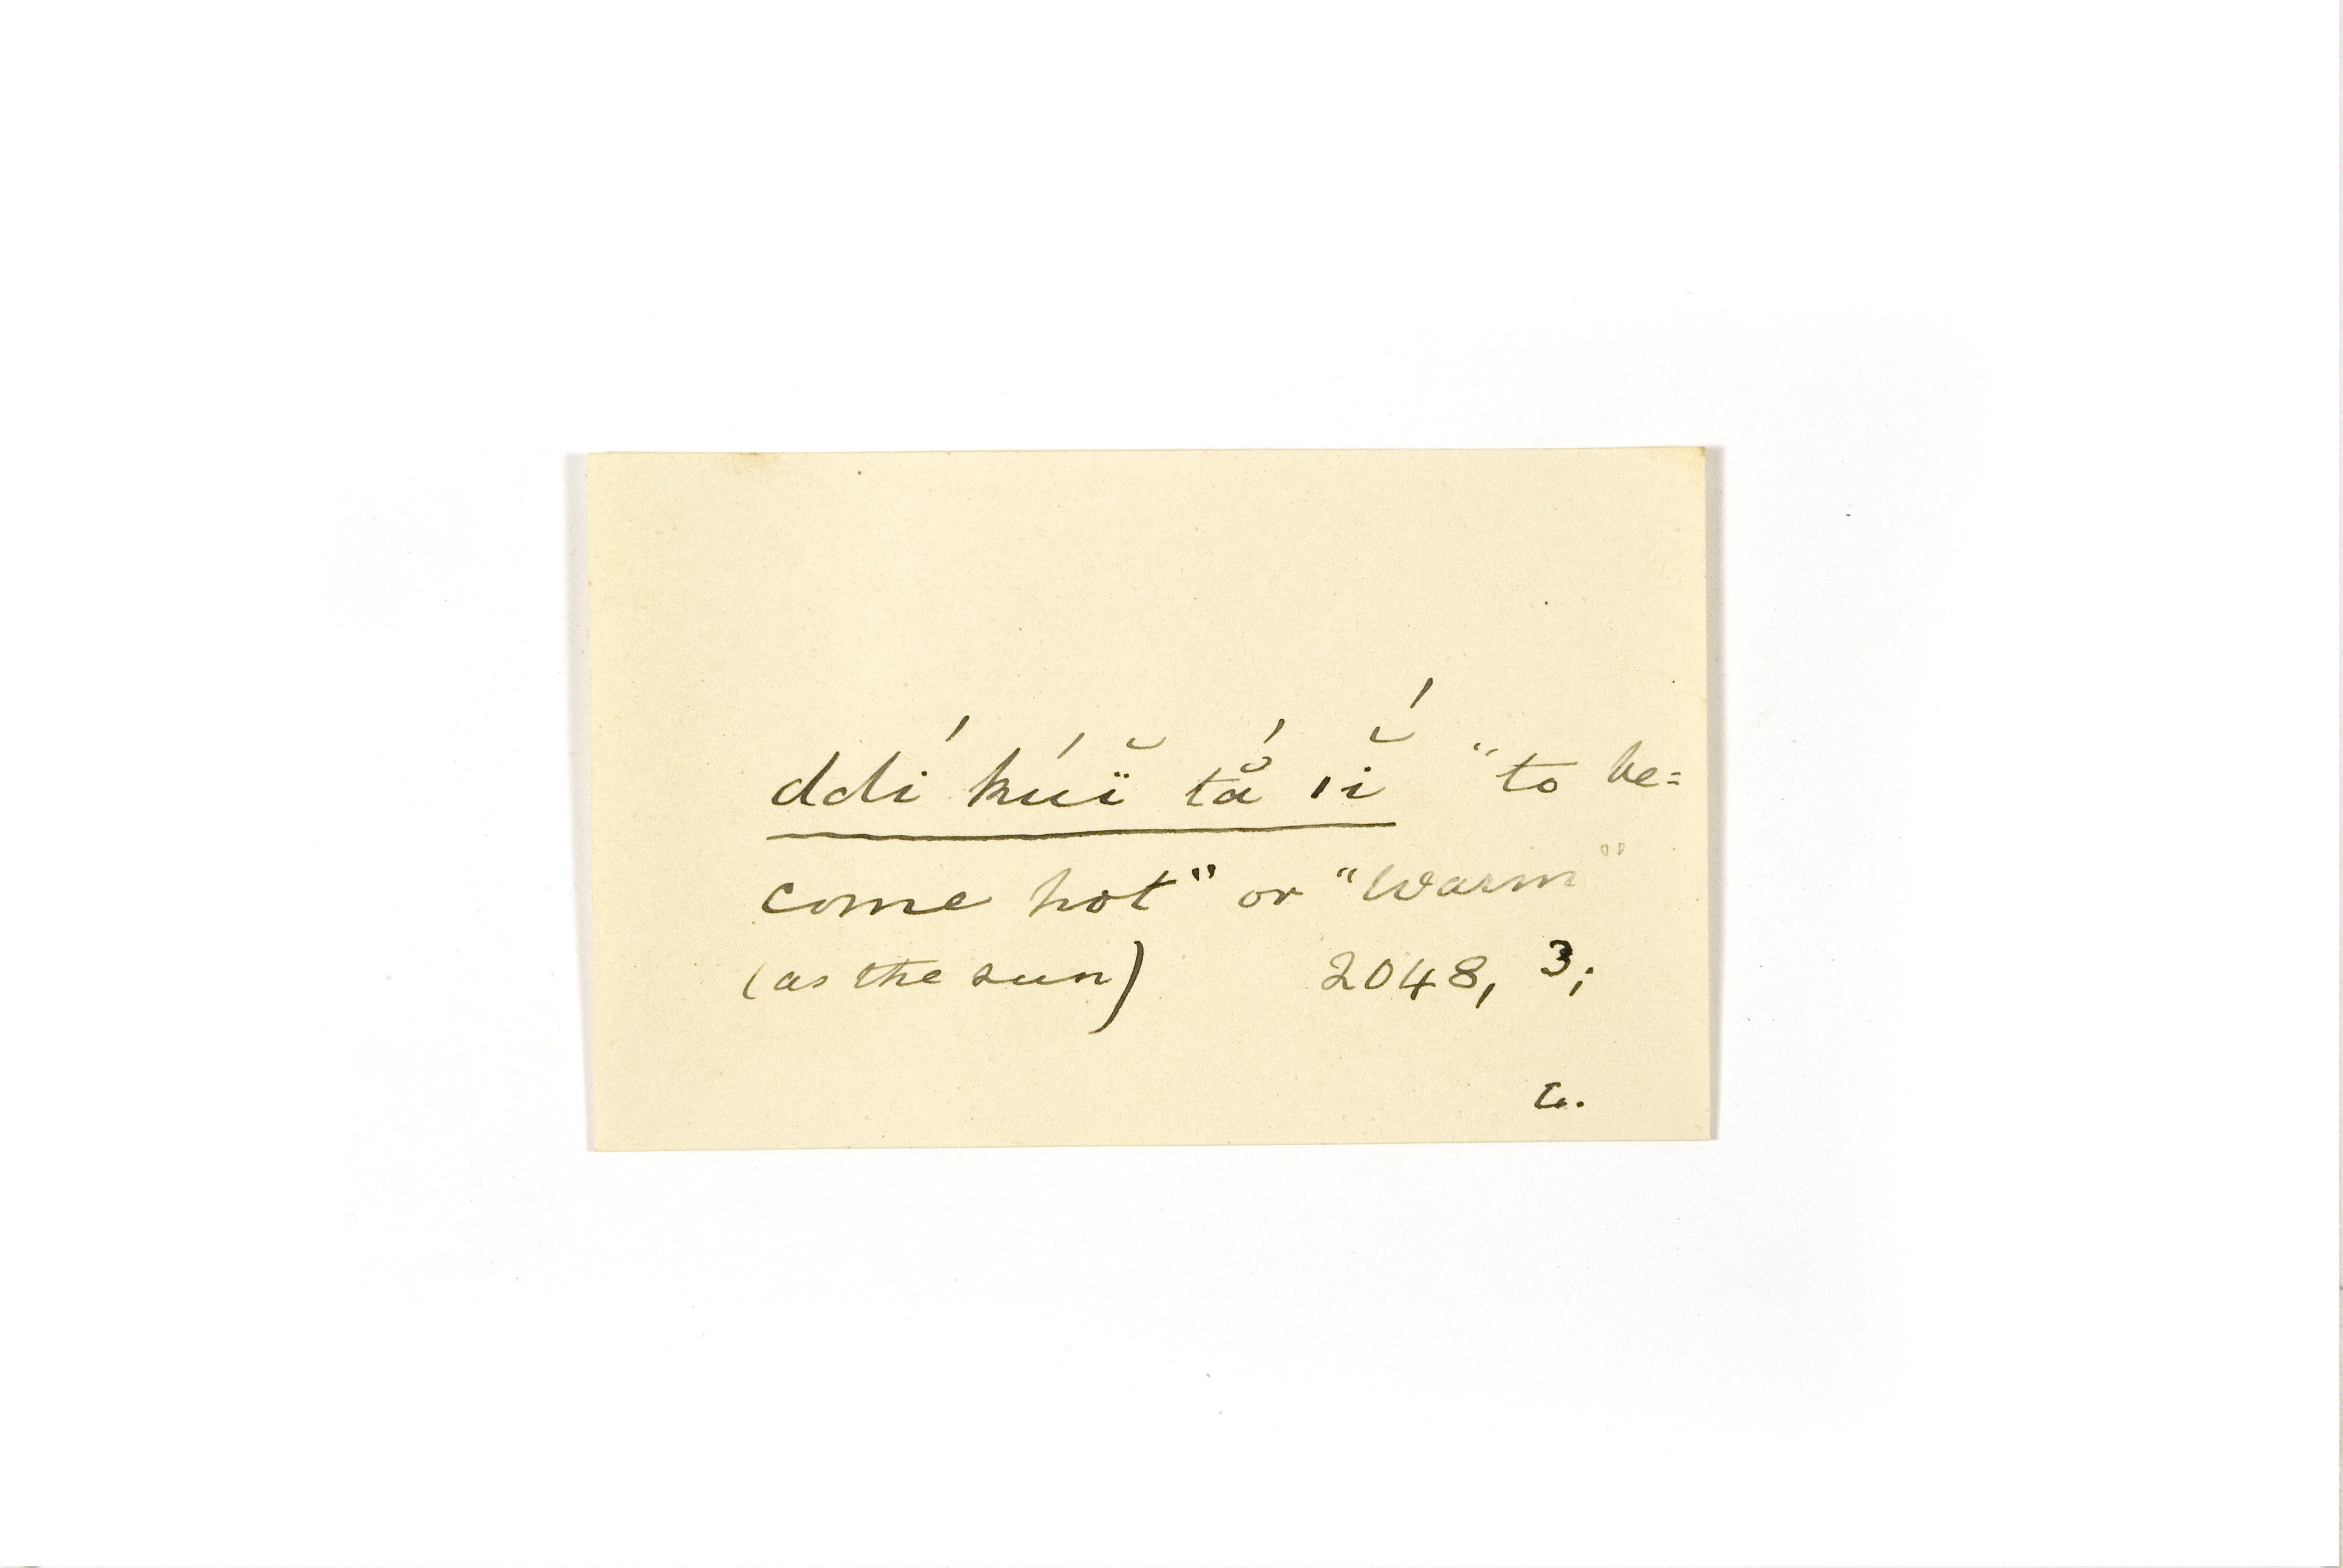 ddí kúï̆ tắ ıĭ́ "to be=
come hot" or "warm"
(as the sun) 2048, 3;
C.